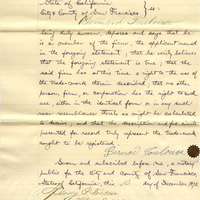 State of California
City & County of San Francisco } ss.
Bernard Toulouse
being duly sworn, deposes and says that he
is a member of the firm, the applicant named
in the foregoing statement; that he verily believes
that the foregoing statement is true; that the
said firm has at this time a right to the use of
the trade-mark therein described; that no other
person, firm, or corporation has the right to such
use, either in the identical form or in any such
near resemblance thereto as might be calculated
to deceive; and that the description and facsimiles
presented for record truly represent the trade-mark
sought to be registered.
Bernard Toulouse
Sworn and subscribed before me, a notary
public for the city and county of San Francisco
State of California, this day of December, 187